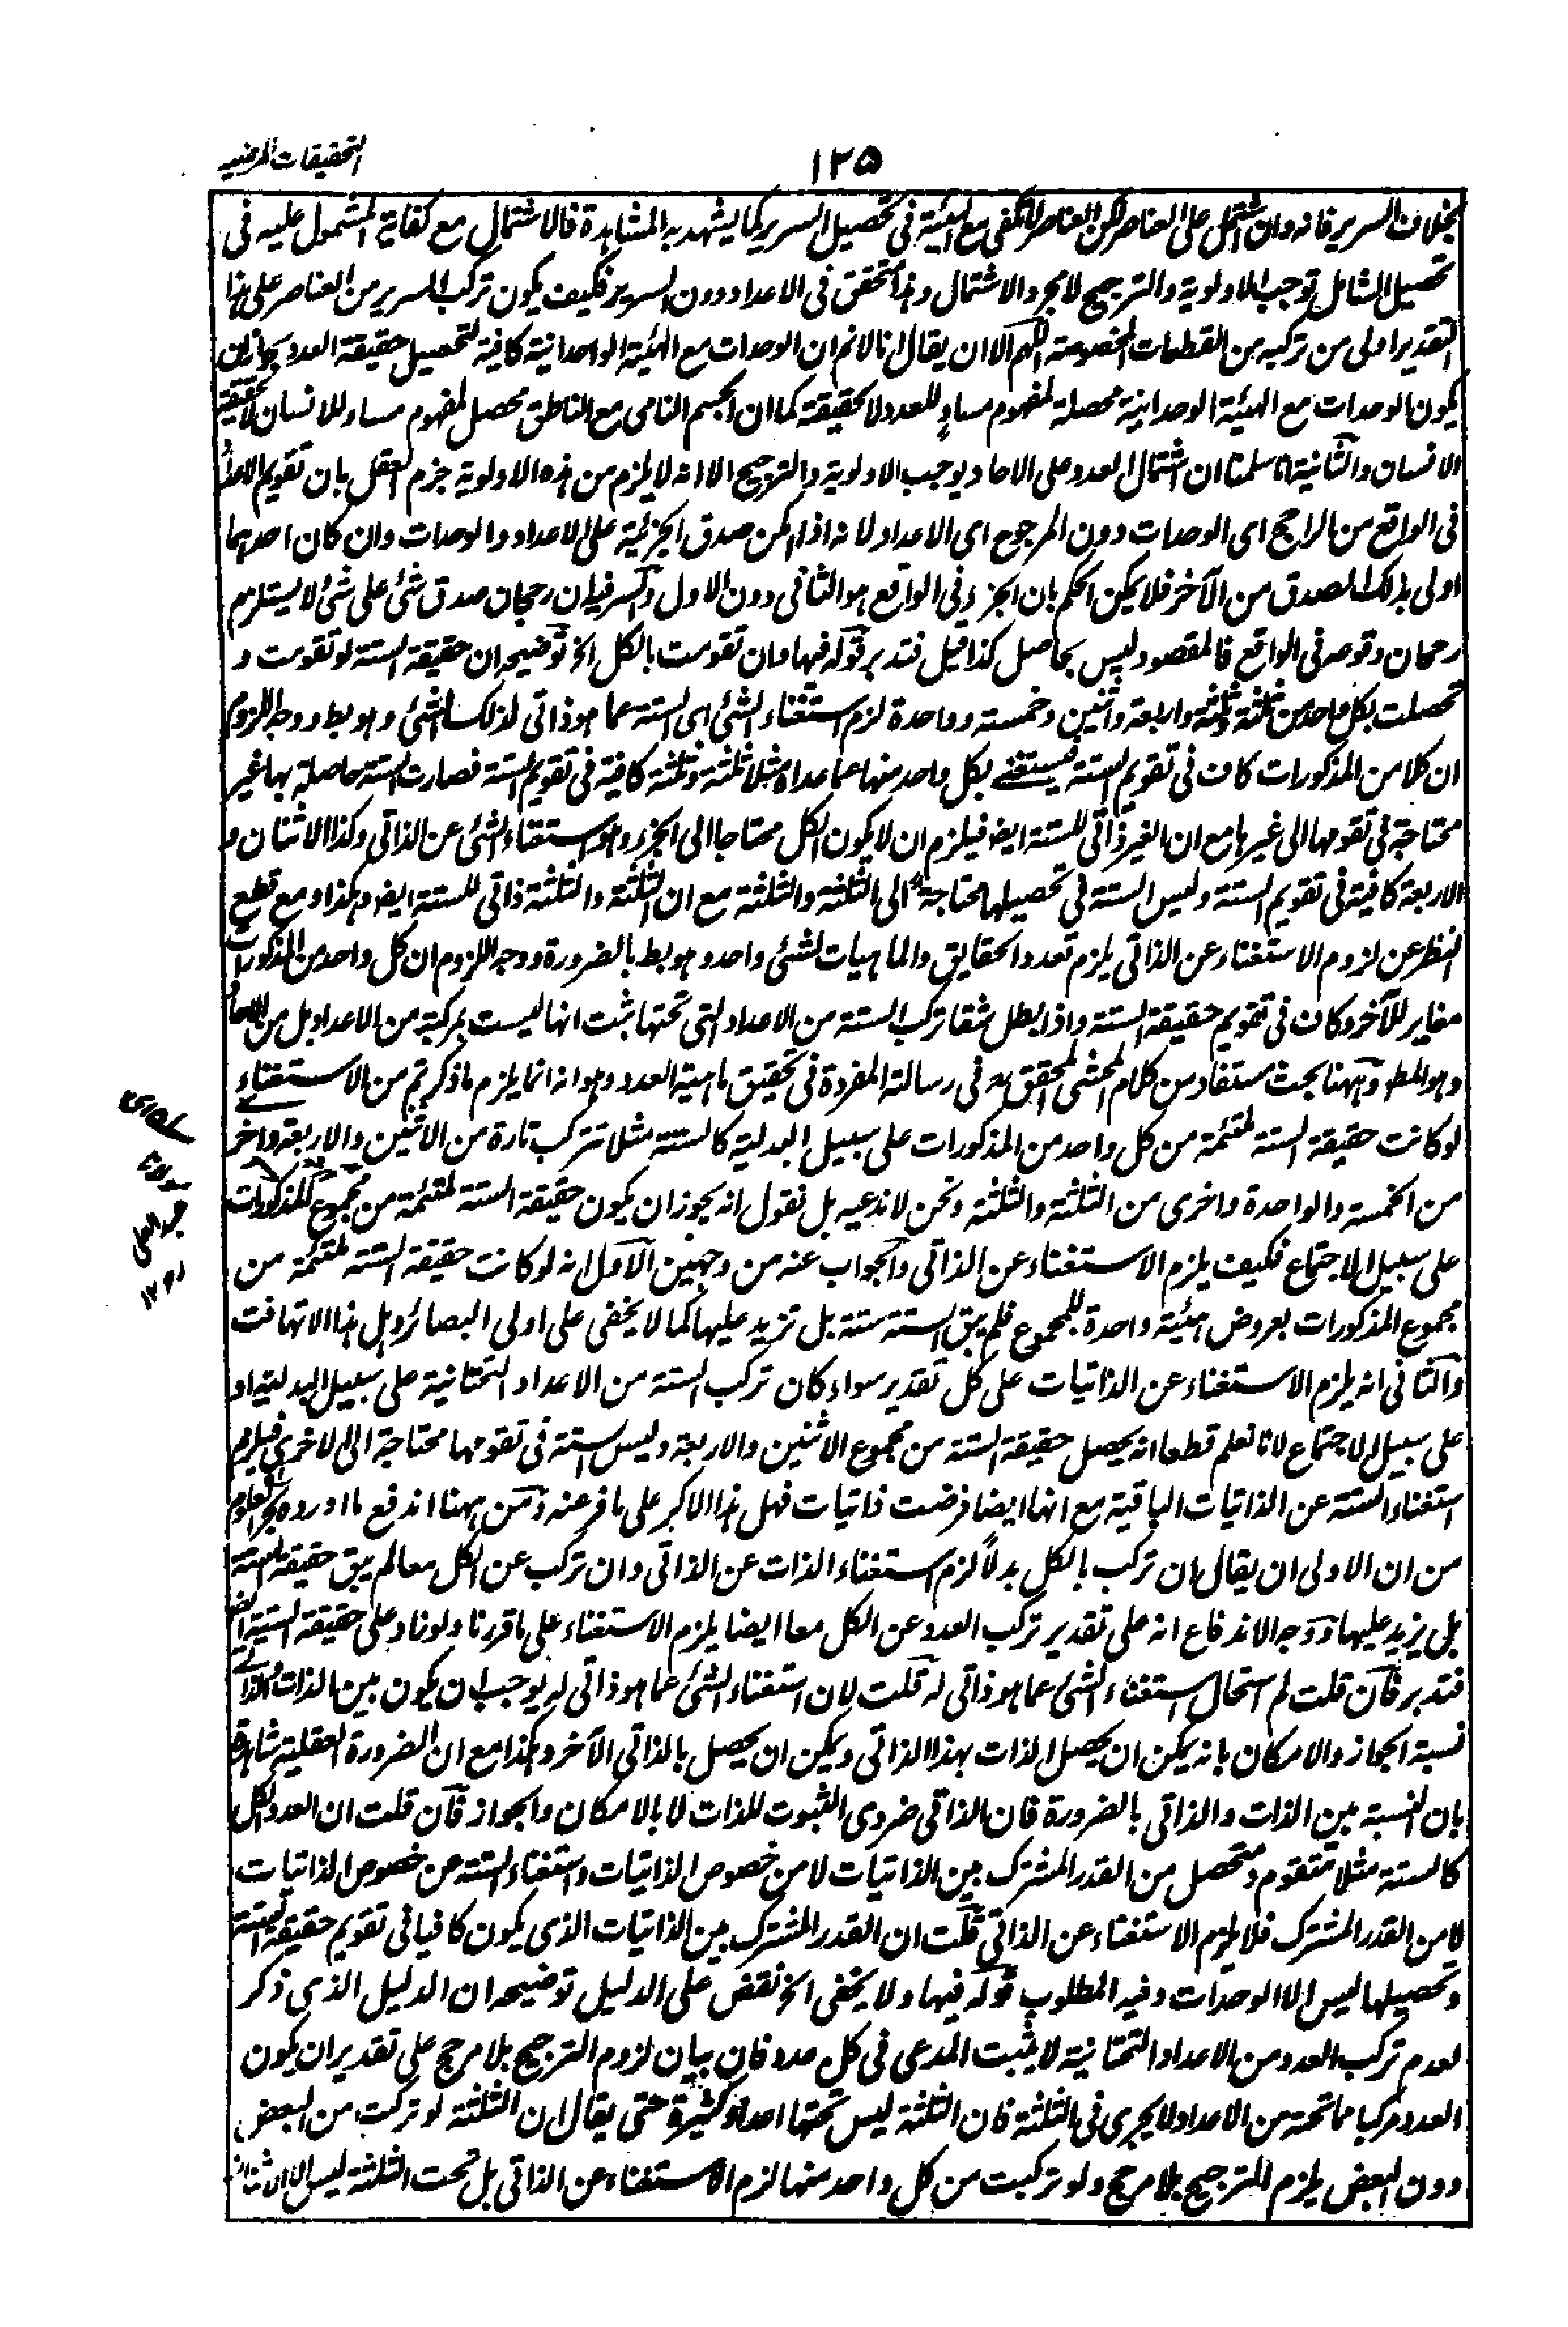 التحقيقات المرضيه
١٢٥
بخلاف السرير فانه وان اشتمل على العناصر لكن العناصر لا تكفى مع الهيئة فى تحصيل السرير كما يشهد به المشاهدة فالاشتمال مع كفاية المشمول عليه فى
تحصيل الشامل توجب الاولوية والترجيح لا مجرد الاشتمال وهذا متحقق فى الاعداد دون السرير فكيف يكون تركب السرير من العناصر على هذا
التقدير اولى من تركبه من القطعات المخصوصة اللهم الا ان يقال انا لانم ان الوحدات مع الهيئة الواحدانية كافية لتحصيل حقيقة العدد بجواز ان
يكون الوحدات مع الهيئة الوحدانية محصلة لمفهوم مساوٍ للعدد لا لحقيقة كما ان الجسم النامى مع الناطق محصل لمفهوم مساو للانسان لا لحقيقة
الانسان والثانية انا سلمنا ان اشتمال العدد على الاحاد يوجب الاولوية والترجيح الا انه لا يلزم من هذه الاولوية جزم العقل بان تقويم الاعداد
فى الواقع من الراجح اى الوحدات دون المرجوح اى الاعداد لانه اذا امكن صدق الجزئية على الاعداد والوحدات وان كان احدهما
اولى بذلك الصدق من الآخر فلا يمكن الحكم بان الجزء فى الواقع هو الثانى دون الاول والسر فيه ان رجحان صدق شئ على شئ لا يستلزم
رجحان وقوعه فى الواقع فالمقصود ليس بحاصل كذا قيل فتدبر قوله فيها وان تقومت بالكل الخ توضيحه ان حقيقة الستة لو تقومت و
تحصلت بكل واحد من ثلثة وثلثة واربعة واثنين وخمسة وواحدة لزم استغناء الشئ اى الستة عما هو ذاتى لذلك الشئ وهو بط ووجه اللزوم
ان كلا من المذكورات كاف فى تقويم الستة فيستغنے بكل واحد منها عما عداه مثلا ثلثة وثلثة كافية فى تقويم الستة فصارت الستة حاصلة بها غير
محتاجة فى تقومها الى غيرها مع ان الغير ذاتى للستة ايض فيلزم ان لا يكون الكل محتاجا الى الجزء وهو استغناء الشئ عن الذاتى وكذا الاثنان و
الاربعة كافية فى تقويم الستة وليس الستة فى تحصيلها محتاجة الى الثلثة والثلثة مع ان الثلثة والثلثة ذاتى للستة ايض وهكذا ومع قطع
النظر عن لزوم الاستغناء عن الذاتى يلزم تعدد الحقايق والماهيات لشئ واحد وهو بط بالضرورة ووجه اللزوم ان كل واحد من المذكورات
مغاير للآخر وكاف فى تقويم حقيقة الستة واذا بطل شقا تركب الستة من الاعداد التى تحتها ثبت انها ليست بمركبة من الاعداد بل من الاحاد
وهو المط وههنا بحث مستفاد من كلام المحشى المحقق رح فى رسالته المفردة فى تحقيق ماهية العدد وهو انه انما يلزم ما ذكرتم من الاستغناء
لو كانت حقيقة الستة ملتئمة من كل واحد من المذكورات على سبيل البدلية كالستة مثلا تتركب تارة من الاثنين والاربعة واخرى
من الخمسة والواحدة واخرى من الثلثة والثلثة ونحن لا ندعيه بل نقول انه يجوز ان يكون حقيقة الستة ملتئمة من مجموع المذكورات
على سبيل الاجتماع فكيف يلزم الاستغناء عن الذاتى والجواب عنه من وجهين الاول انه لو كانت حقيقة الستة ملتئمة من
مجموع المذكورات بعروض هيئة واحدة للمجموع فلم يبق الستة ستة بل تزيد عليها كما لا يخفى على اولى البصائر وهل هذا الا تهافت
والثانى انه يلزم الاستغناء عن الذاتيات على كل تقدير سواء كان تركب الستة من الاعداد التحتانية على سبيل البدلية او
على سبيل الاجتماع لانا نعلم قطعا انه يحصل حقيقة الستة من مجموع الاثنين والاربعة وليس الستة فى تقومها محتاجة الى الاخرى فيلزم
استغناء الستة عن الذاتيات الباقية مع انها ايضا فرضت ذاتيات فهل هذا الا كر على ما فر عنه ومن ههنا اندفع ما اورده بحر العلوم
من ان الاولى ان يقال ان تركب بالكل بدلاً لزم استغناء الذات عن الذاتى وان تركب عن الكل معا لم يبق حقيقة الستة
بل يزيد عليها ووجه الاندفاع انه على تقدير تركب العدد عن الكل معا ايضا يلزم الاستغناء على ما قررنا ولو زاد على حقيقة الستة ايضا
فتدبر فان قلت لم استحال استغناء الشئ عما هو ذاتى له قلت لان استغناء الشئ عما هو ذاتى له يوجب ان يكون بين الذات والذاتى
نسبة الجواز والامكان بانه يمكن ان يحصل الذات بهذا الذاتى ويمكن ان يحصل بالذاتى الآخر وهكذا مع ان الضرورة العقلية شاهدة
بان النسبة بين الذات والذاتى بالضرورة فان الذاتى ضرورى الثبوت للذات لا بالامكان والجواز فان قلت ان العدد الكل
كالستة مثلا متقوم ومتحصل من القدر المشترك بين الذاتيات لا من خصوص الذاتيات واستغناء الستة عن خصوص الذاتيات
لا من القدر المشترك فلا يلزم الاستغناء عن الذاتى قلت ان القدر المشترك بين الذاتيات الذى يكون كافيا فى تقويم حقيقة الستة
وتحصيلها ليس الا الوحدات وفيه المطلوب قوله فيها ولا يخفى الخ نقض على الدليل توضيحه ان الدليل الذى ذكر
لعدم تركب العدد من الاعداد التحتانية لا يثبت المدعى فى كل عدد فان بيان لزوم الترجيح بلا مرجح على تقدير ان يكون
العدد مركبا مما تحته من الاعداد لا يجرى فى الثلثة فان الثلثة ليس تحتها اعداد كثيرة حتى يقال ان الثلثة لو تركبت من البعض
دون البعض يلزم الترجيح بلا مرجح ولو تركبت من كل واحد منها لزم الاستغناء عن الذاتى بل تحت الثلثة ليس الا الاثنان